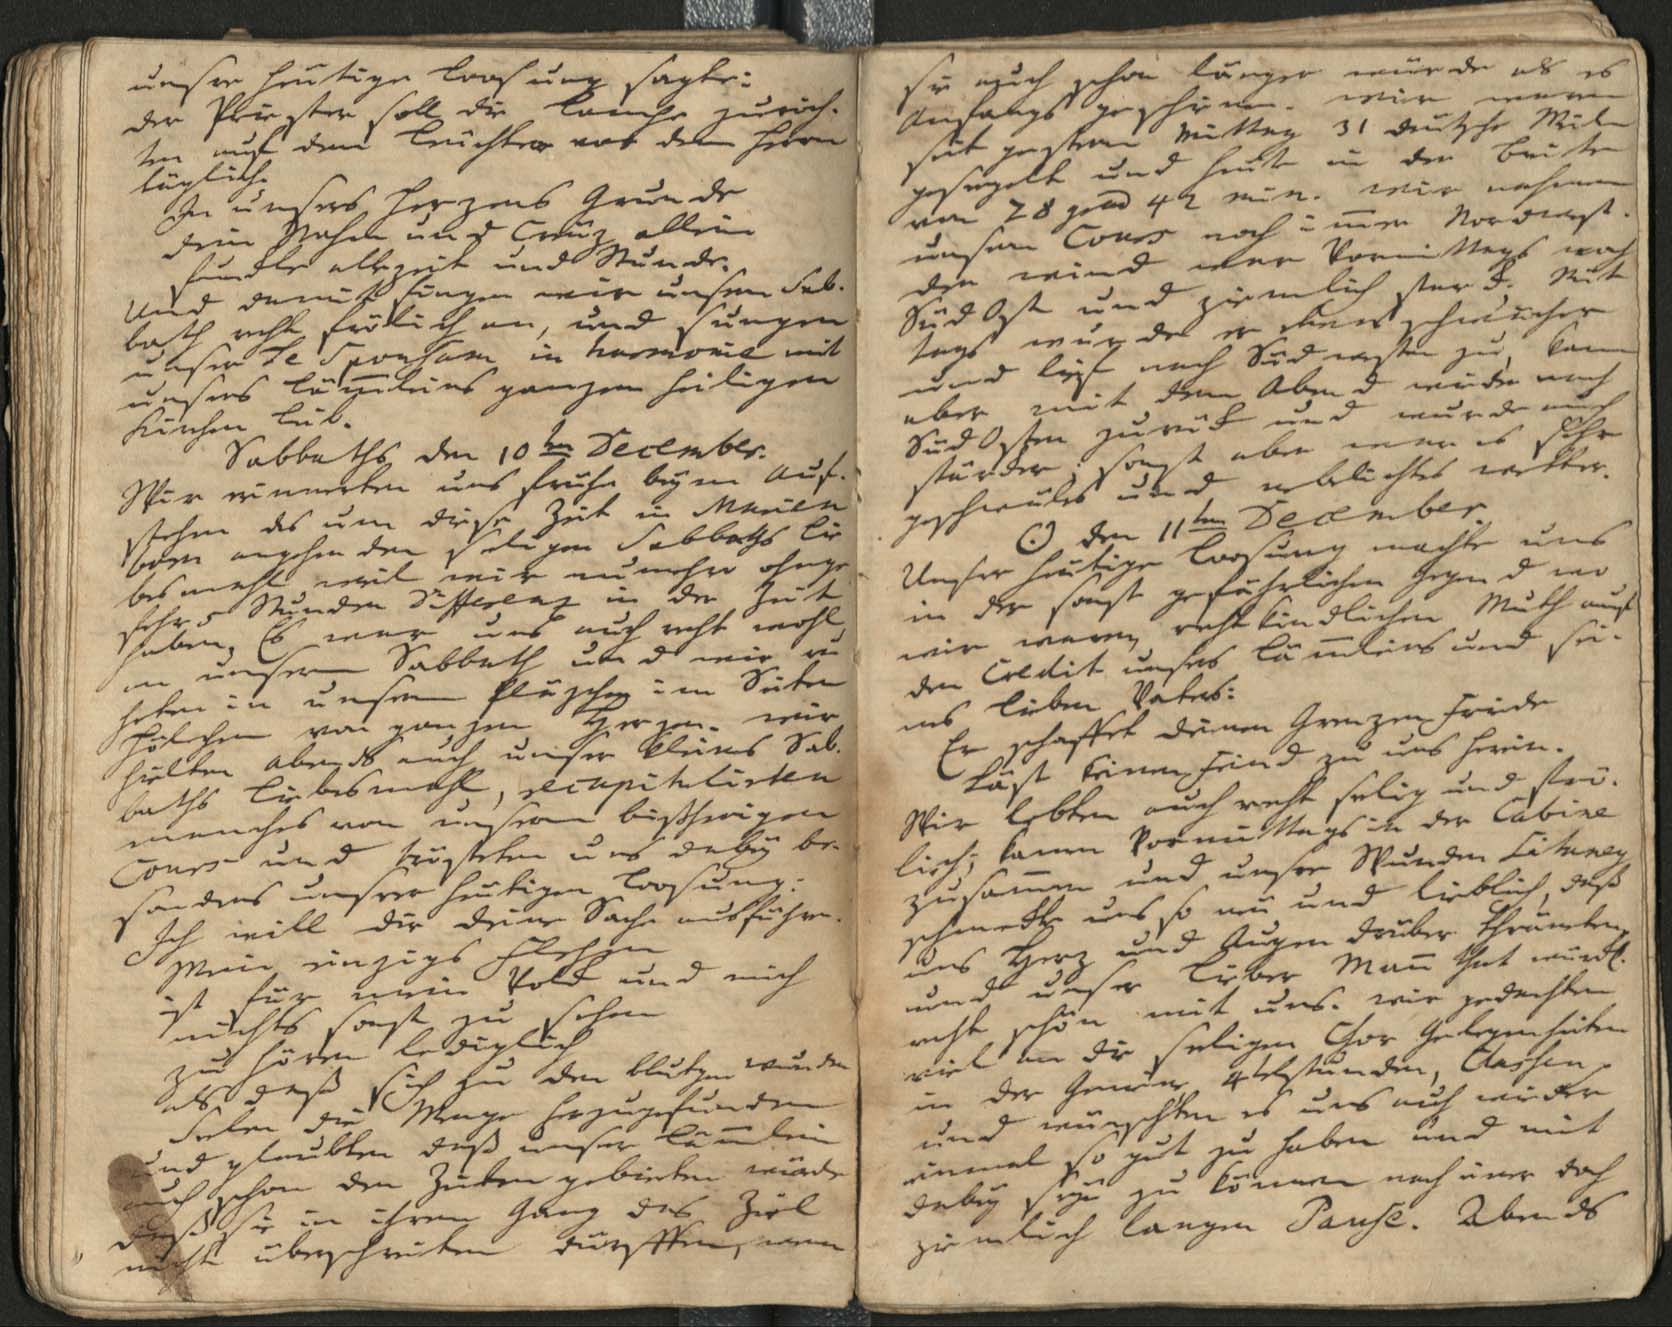 unsre heutige Loosung sagte:
der Priester soll die Lampe zurich-
ten auf dem Leuchter vor dem Herrn
täglich.
In unsers Herzens Grunde
dein Nahm und Creuz allein
funckle allezeit und Stunde.
Und damit fingen wir unsern Sab-
bath recht frölich an, und sungen
unser Te Sponsam in harmonie mit
unsers Lämmleins ganzen heiligen
Kirchen Leib.
Sabbaths den 10ten December.
Wir erinnerten uns fruhe beym Auf-
stehen des um diese Zeit in
angehenden seligen Sabbaths Lie
besmahls weil wir nunmehro ohnge
fehr 5 Stunden Differenz in der Zeit
haben. Es war uns auch recht wohl
in unserm Sabbath und wir ru
heten in unserm Pläzchen im Seiten
Hölchen von ganzem Herzen. Wir
hielten abends auch unser kleines Sab-
baths Liebesmahl, recapitulirten
manches von unserm bißherigen
Cours und trösteten uns dabey be-
sonders unserer heutigen Loosung:
Ich will dir deine Sache ausführen.
Mein einzigs Flehen
ist für mein Volck und mich
nichts sonst zu sehen
zu hören lediglich
als daß sich zu den blutgen Wunden
Seelen die Menge herzugefunden
und glaubten daß unser Lämmlein
auch schon den Zeiten gebieten würde
daß sie in ihrem Gang das Ziel
nicht überschreiten dürfften, wenn
sie auch schon länger würde als es
Anfangs geschienen. Wir waren
seit gestern Mittag 31 deutsche Meilen
gesegelt und heut in der Breite
von 28 grad 42 min. Wir nahmen
unsern Cours noch immer Nordwest.
der Wind war Vormittags noch
SüdOst und ziemlich starck. Mit
tags wurde er etwas schwächer
und lief nach Südwesten zu, kam
aber mit dem Abend wieder nach
SüdOsten zurück und wurde auch
stärcker; sonst aber war es sehr
geschwüles und neblichtes wetter.
☉ den 11ten December
Unser heutige Loosung machte uns
in der sonst gefährlichen Gegend wo
wir waren, recht kindlichen Muth auf
den Credit unsers Lämmleins und sei-
nes lieben Vaters:
Er schaffet deinen Grenzen Friede
Läst keinen Feind zu uns herein.
Wir lebten auch recht selig und frö-
lich; kamen Vormittags in der Cabine
zusammen und unsre Wunden Litaney
schmeckte uns so neu und lieblich, daß
uns Herz und Augen drüber thränten,
und unser lieber Mann that würckl.
recht schön mit uns. Wir gedachten
viel an die seligen Chor Gelegenheiten
in der Gemeine, 4telstunden, Classen
und wünschten es uns auch wieder
einmal so gut zu haben und mit
dabey seyn zu können nach einer doch
ziemlich langen Pause. Abends